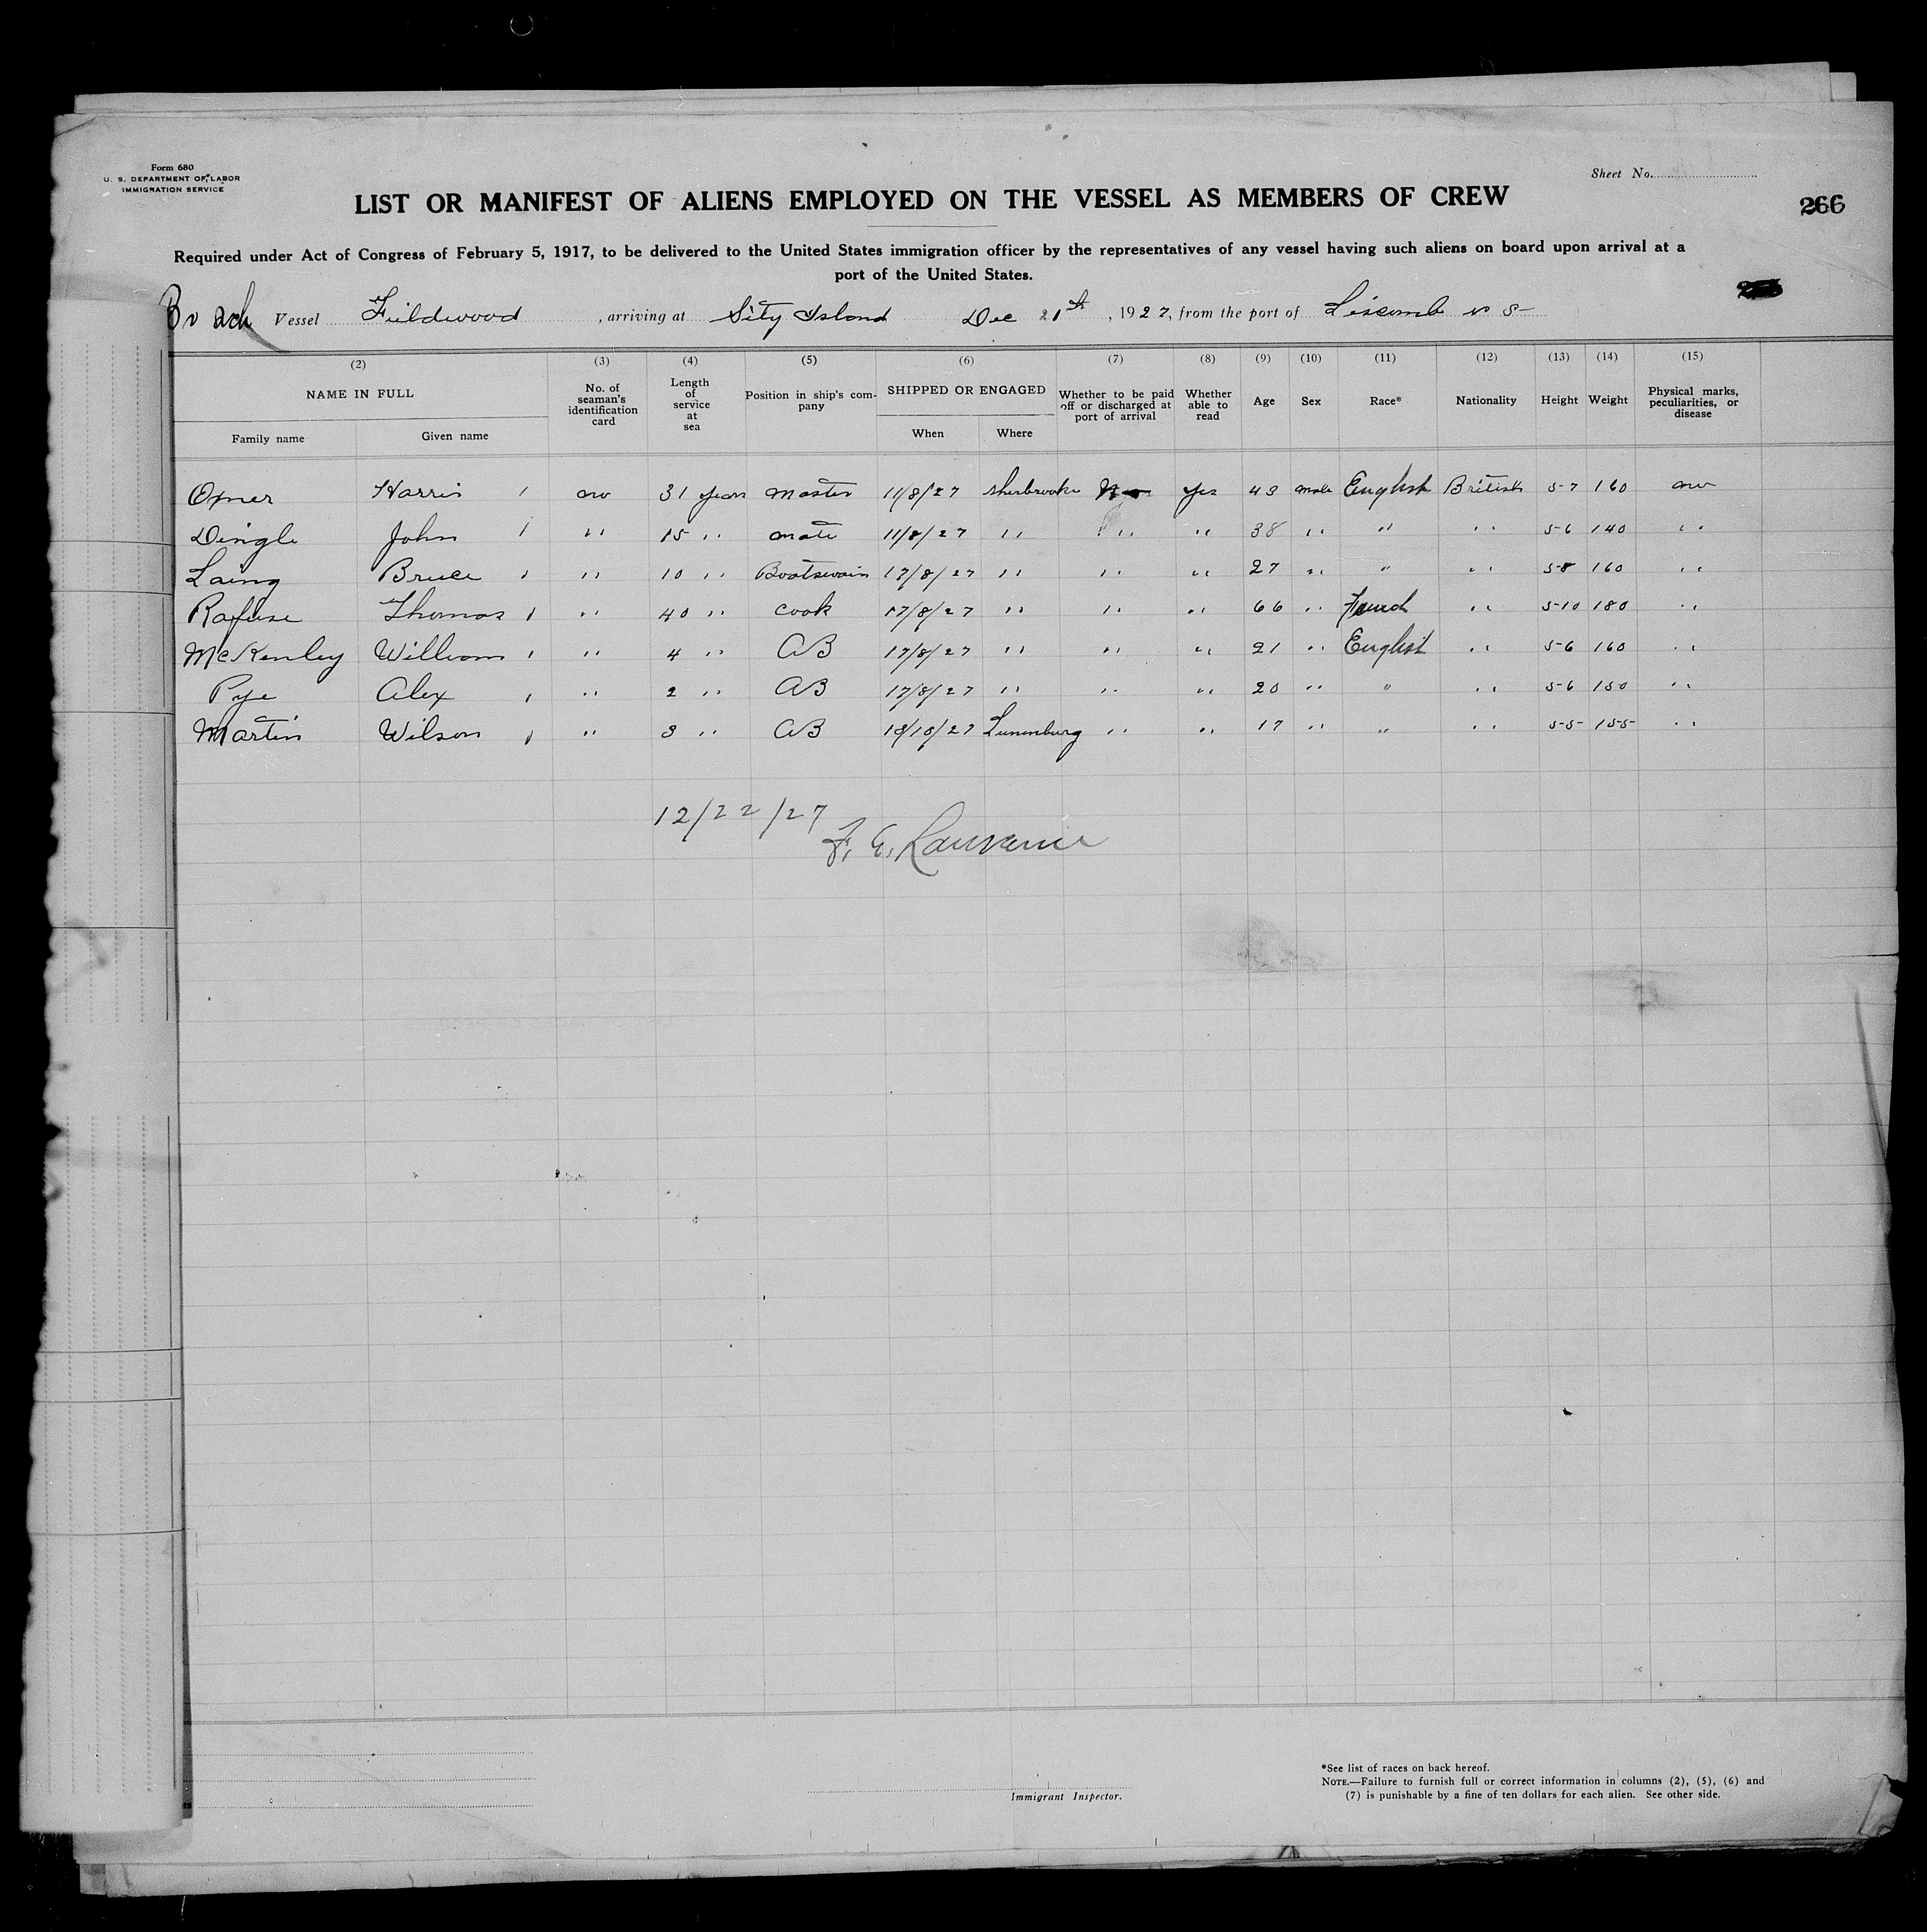 Form 680
U. S. DEPARTMENT OF LABOR
IMMIGRATION SERVICE
Sheet No.
LIST OR MANIFEST OF ALIENS EMPLOYED ON THE VESSEL AS MEMBERS OF CREW
266
Required under Act of Congress of February 5, 1917, to be delivered to the United States immigration officer by the representatives of any vessel having such aliens on board upon arrival at a
port of the United States.
Br Sch Vessel Fieldwood , arriving at Sity Island Dec 21st , 1927, from the port of Liscomb N S
(2) (3) (4) (5) (6) (7) (8) (9) (10) (11) (12) (13) (14) (15)
NAME IN FULL No. of seaman's identification card Length of service at sea Position in ship's company SHIPPED OR ENGAGED Whether to be paid off or discharged at port of arrival Whether able to read Age Sex Race* Nationality Height Weight Physical marks, peculiarities, or disease
Family name Given name When Where
Harris 1 no 31 years master 11/8/27 Sherbrooke yes 43 male English British 5-7 160 no
Dingle John 1 " 15 " mate 11/8/27 " " " 38 " " " 5-6 140 "
Laing Bruce 1 " 10 " Boatswain 17/8/27 " " " 27 " " " 5-8 160 "
Rafuse Thomas 1 " 40 " cook 17/8/27 " " " 66 " French " 5-10 180 "
McKenley William 1 " 4 " AB 17/8/27 " " " 21 " English " 5-6 160 "
Pye Alex 1 " 2 " AB 17/8/27 " " " 20 " " " 5-6 150 "
Martin Wilson 1 " 3 " AB 18/10/27 Lunenburg " " 17 " " " 5-5 155 "
12/22/27
F. E. Lawrence
Immigrant Inspector.
*See list of races on back hereof.
NOTE.—Failure to furnish full or correct information in columns (2), (5), (6) and
(7) is punishable by a fine of ten dollars for each alien. See other side.